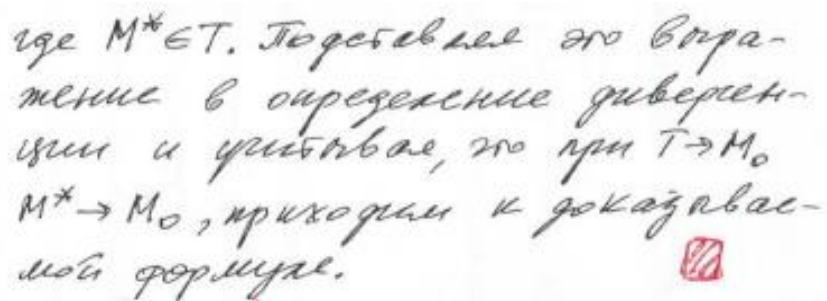 где M* ∈ T. Подставляя это выра-
жение в определение диверген-
ции и учитывая, что при T → M₀
M* → M₀, приходим к доказывае-
мой формуле.